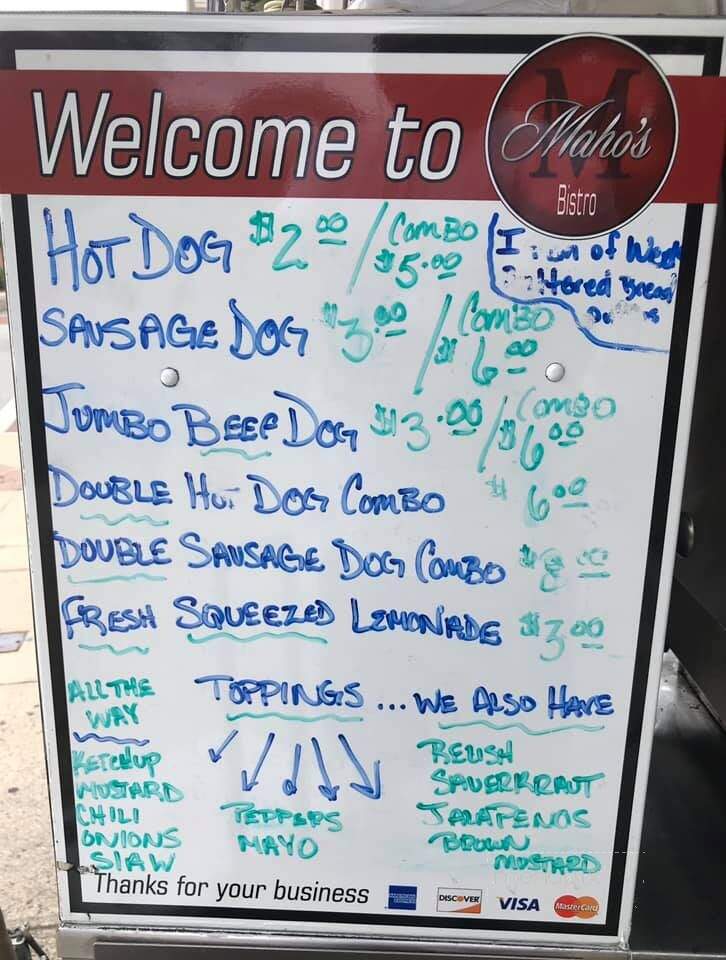 Welcome to
M
Maho's
Bistro
HOT DOG $2.00 / COMBO $5.00
SAUSAGE DOG $3.00 / COMBO $6.00
JUMBO BEEF DOG $3.00 / COMBO $6.00
DOUBLE HOT DOG COMBO $6.00
DOUBLE SAUSAGE DOG COMBO $8.00
FRESH SQUEEZED LEMONADE $3.00
of
Bread
ALL THE
WAY
KETCHUP
MUSTARD
CHILI
ONIONS
SLAW
TOPPINGS ... WE ALSO HAVE
PEPPERS
MAYO
RELISH
SAUERKRAUT
JALAPENOS
BROWN
MUSTARD
Thanks for your business
AMERICAN EXPRESS
DISCOVER
VISA
MasterCard